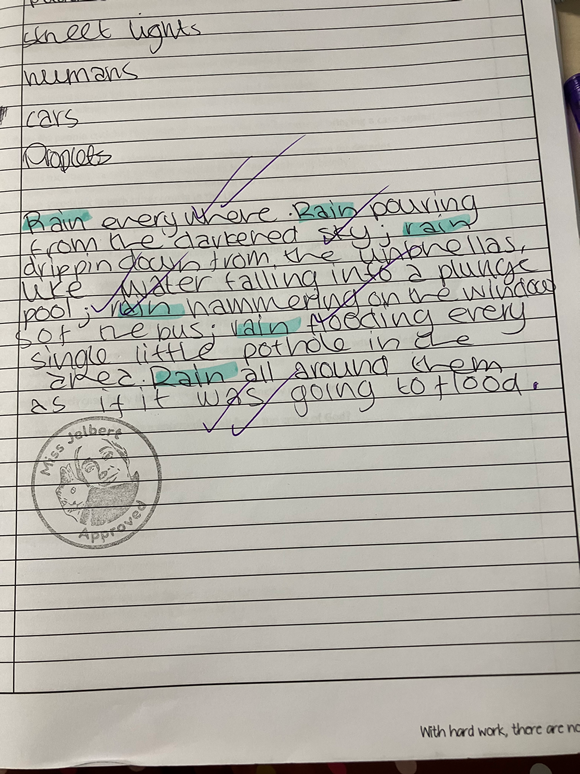 street lights
humans
cars
Droplets
Rain everywhere. Rain pouring
from the darkened sky; rain
drippin down from the umbrellas,
like water falling into a plunge
pool; rain hammering on the window
s of the bus; rain flooding every
single little pothole in the
area. Rain all around them
as if it was going to flood.
Miss Jelbert
Approved
With hard work, there are no